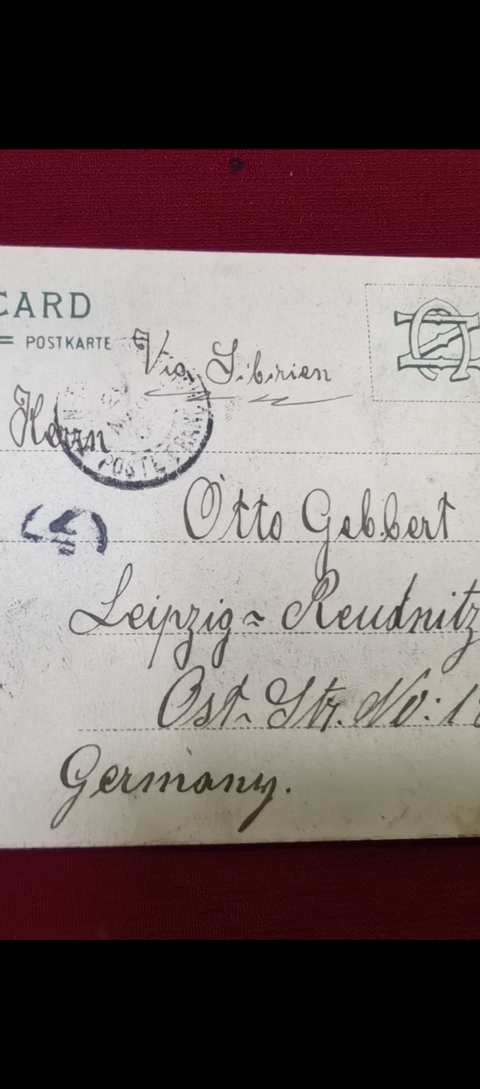 CARD
= POSTKARTE
Via Sibirien
Herrn
POSTE
Otto Gebbert
Leipzig ~ Reudnitz
Ost~Str. No: 1
Germany.